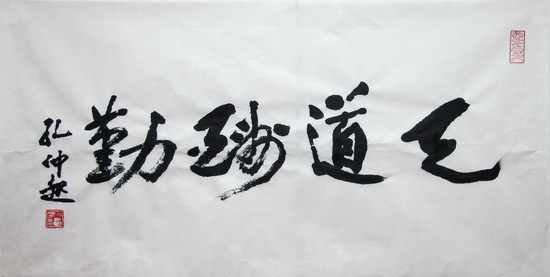 天道酬勤
孔仲起